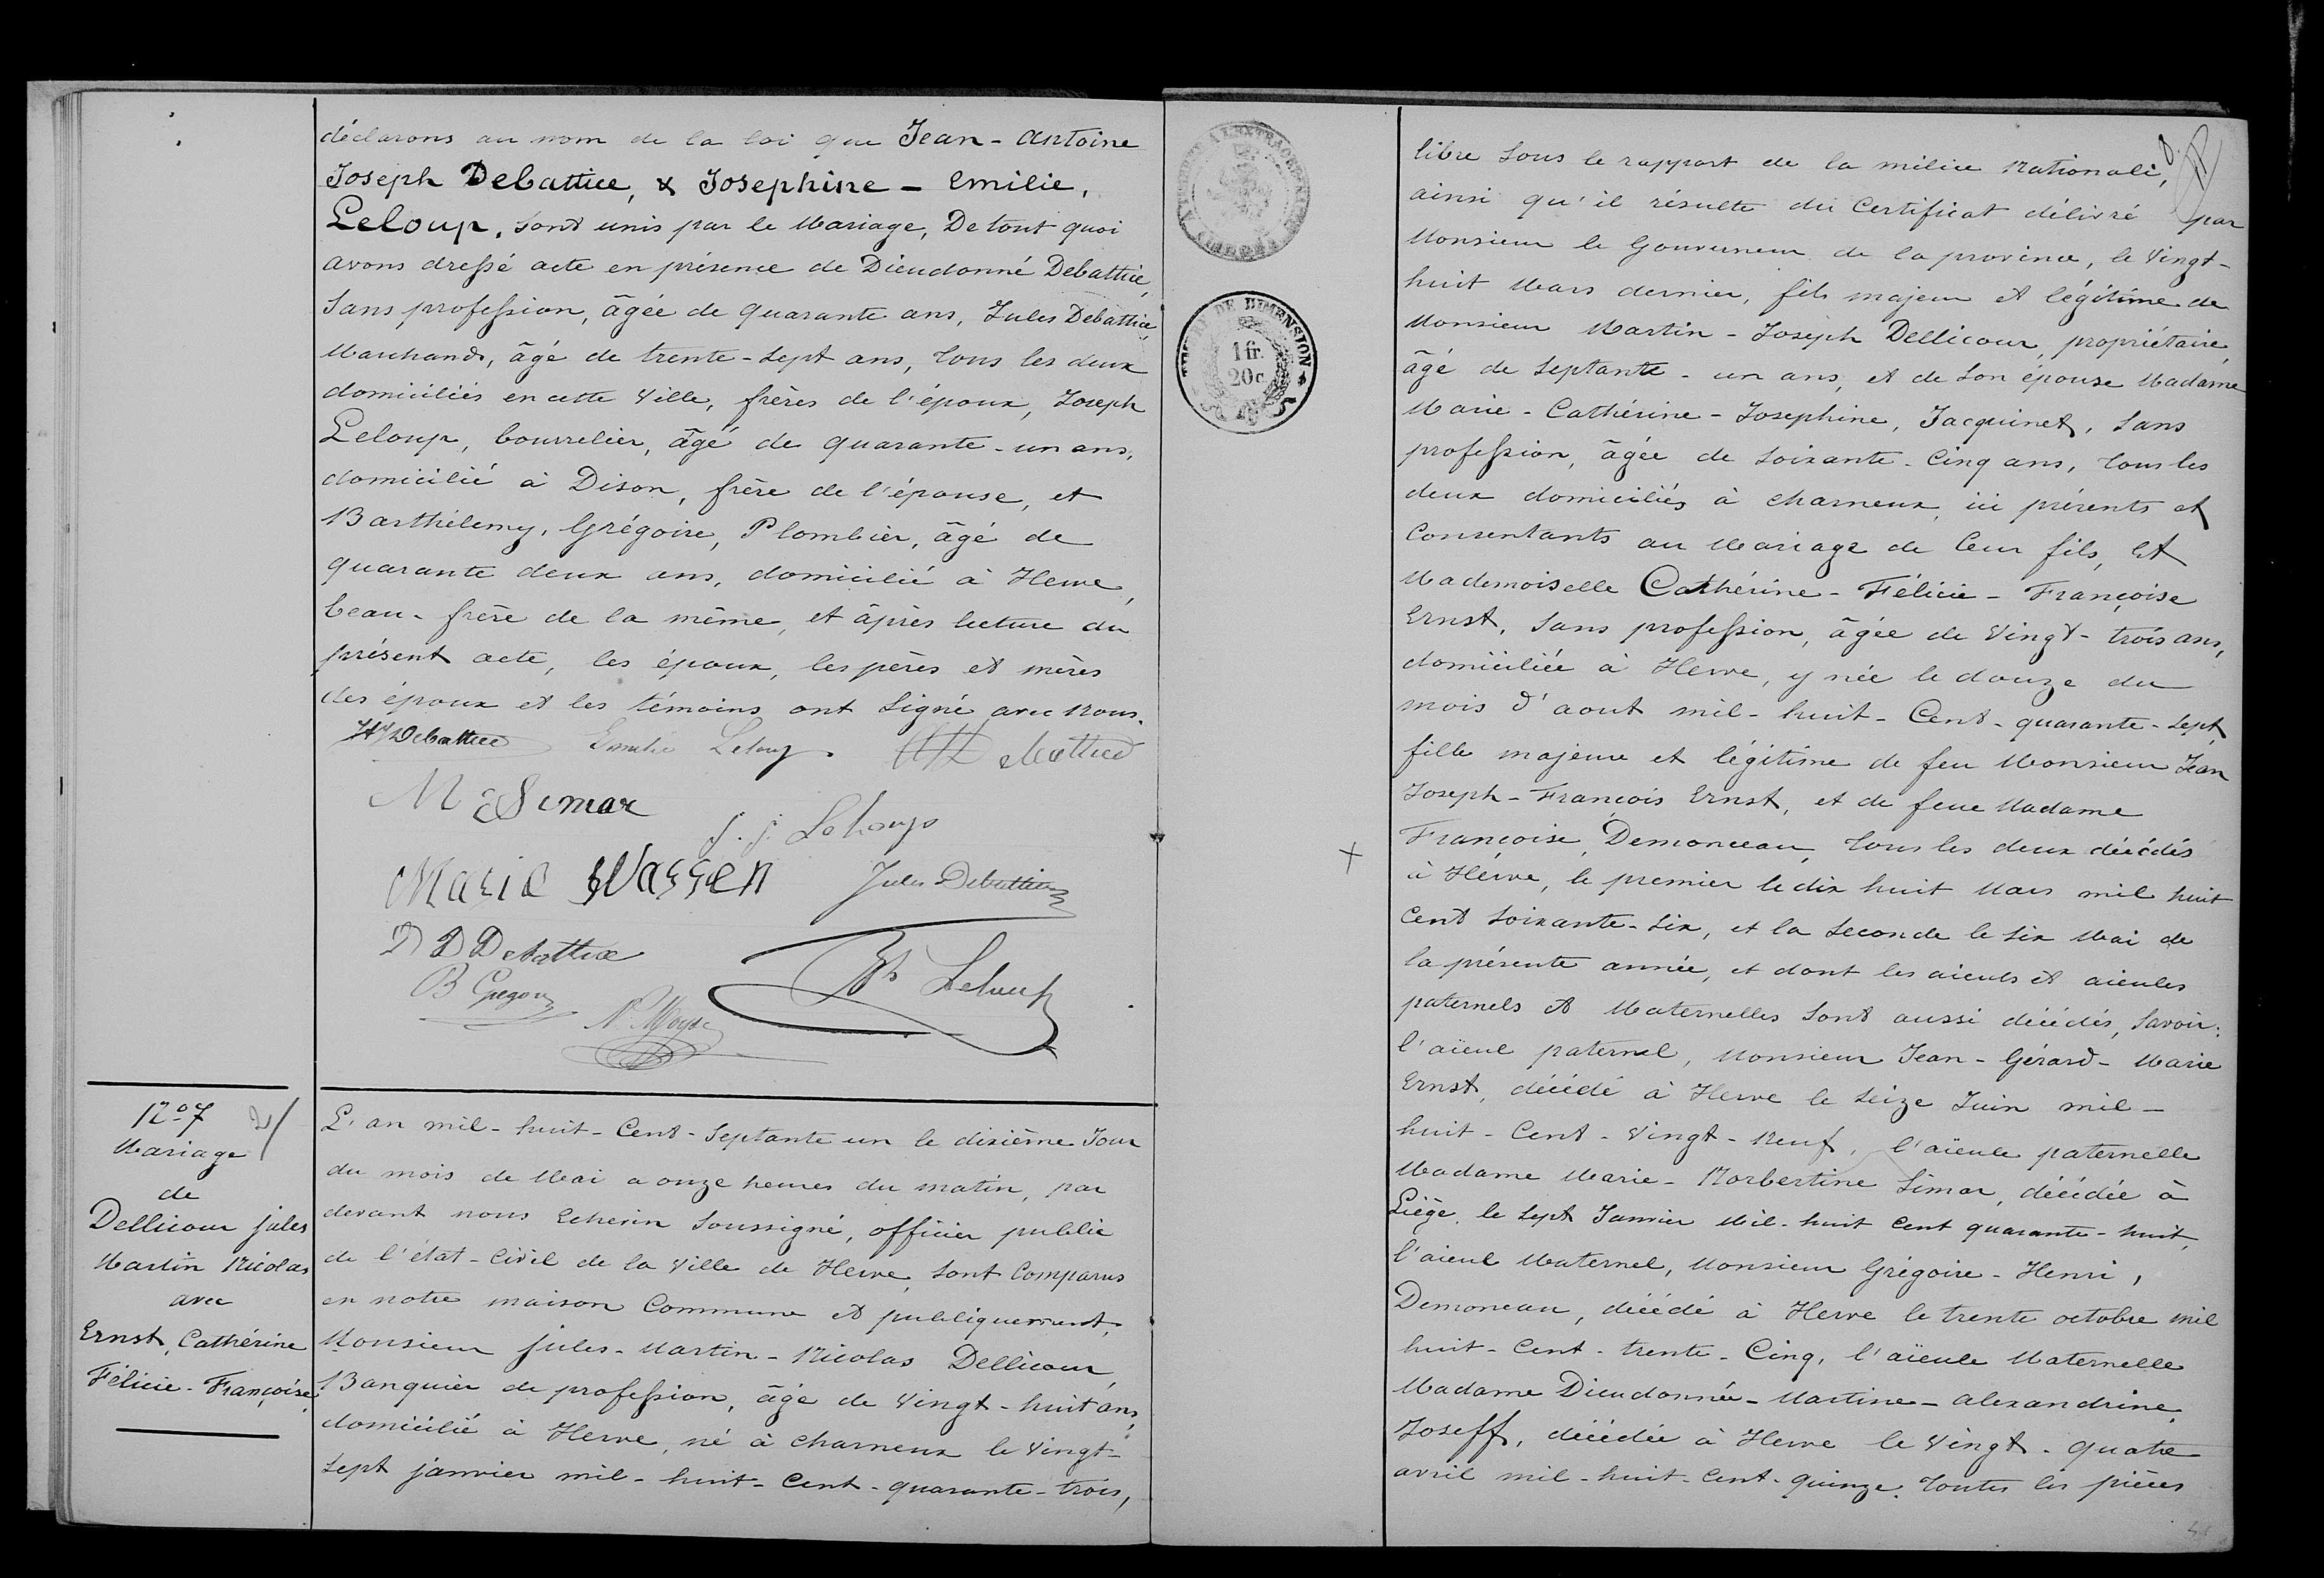 déclarons au nom de la loi que Jean - Antoine
Joseph Debattice, & Josephine - Emilie,
Leloup, sont unis par le Mariage, De tout quoi
avons dressé acte en présence de Dieudonné Debattice,
Sans profession, âgée de quarante ans, Jules Debattice,
Marchand, âgé de trente-sept ans, tous les deux
domiciliés en cette Ville, frères de l'époux, Joseph
Leloup, bourrelier, âgé de quarante-un ans,
domicilié à Dison, frère de l'épouse, et
Barthélemy, Grégoire, Plombier, âgé de
quarante deux ans, domicilié à Herve,
beau-frère de la même, et âprès lecture du
présent acte, les époux, les pères et mères
des époux et les témoins ont Signé avec nous.
Debattice Emilie Leloup
Simar
J. J. Leloup
Maria Wassen Jules Debattice
D D Debattice
Leloup
B Gregoire
N. Moyse
N° 7
Mariage
de
Dellicour jules
Martin Nicolas
avec
Ernst, Cathérine
Félicie - Françoise,
L'an mil-huit-Cent-Septante un le dixième Jour
du mois de Mai a onze heures du matin, par
devant nous Echevin Soussigné, officier public
de l'état-Civil de la Ville de Herve, sont Comparus
en notre maison Commune et publiquement,
Monsieur jules-Martin-Nicolas Dellicour,
Banquier de profession, âgé de Vingt-huit ans,
domicilié à Herve, né à charneux le Vingt-
Sept janvier mil-huit-Cent-quarante-trois,
TIMBRE DE DIMENSION
1 fr.
20 c
libre sous le rapport de la milice nationale,
ainsi qu'il résulte du Certificat délivré par
Monsieur le Gouverneur de la province, le Vingt-
huit Mars dernier, fils majeur et légitime de
Monsieur Martin-Joseph Dellicour, propriétaire,
âgé de septante-un ans, et de Son épouse Madame
Marie-Cathérine-Josephine, Jacquinet, Sans
profession, âgée de soixante-Cinq ans, tous les
deux domiciliés à charneux, ici présents et
Consentants au Mariage de leur fils, Et
Mademoiselle Cathérine-Félicie-Françoise
Ernst, Sans profession, âgée de Vingt-trois ans,
domiciliée à Herve, y née le douze du
mois d'aout mil-huit-Cent-quarante-sept,
fille majeure et légitime de feu Monsieur Jean
Joseph-François Ernst, et de feue Madame
Françoise, Demonceau, tous les deux décédés
à Hérve, le premier le dix huit Mars mil huit
Cent soixante-six, et la seconde le six Mai de
la présente année, et dont les aieuls et aieules
paternels et Maternelles sont aussi décédés, Savoir:
l'aïeul paternel, Monsieur Jean-Gérard-Marie
Ernst, décédé à Herve le Seize Juin mil-
huit-Cent-Vingt-neuf, l'aïeule paternelle
Madame Marie-Norbertine Simar, décédée à
Liège, le Sept Janvier Mil-huit Cent quarante-huit,
l'aïeul Maternel, Monsieur Grégoire-Henri,
Demonceau, décédé à Herve le trente octobre mil
huit-Cent-trente-Cinq, l'aïeule Maternelle
Madame Dieudonnée-Martine-alexandrine,
Joseff, décédée à Herve le Vingt-quatre
avril mil-huit-Cent-quinze. toutes les pièces